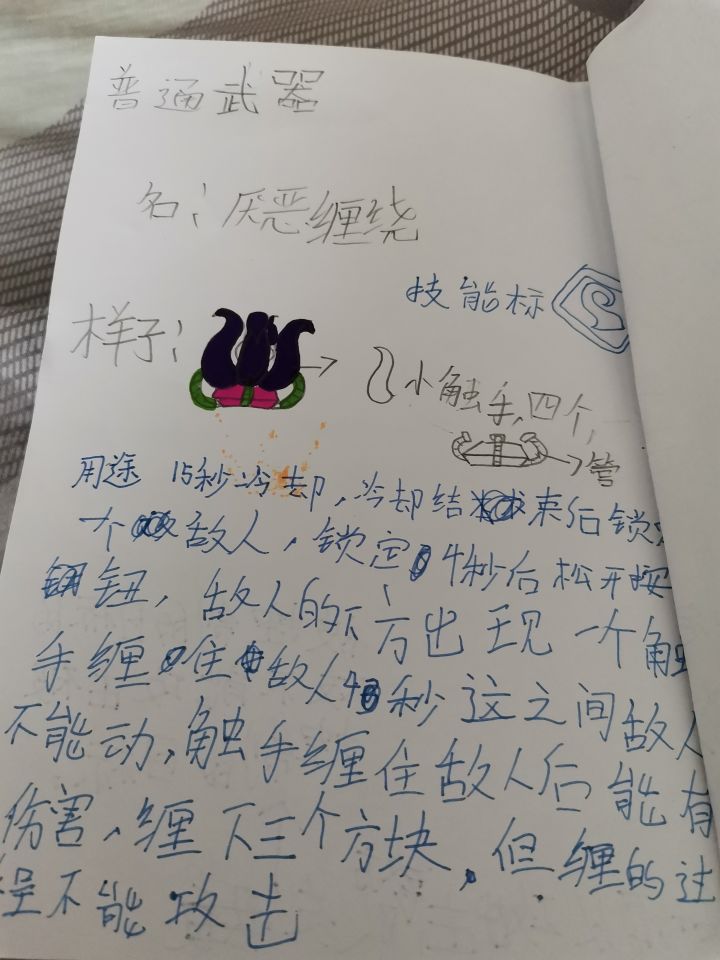 普通武器
名：厌恶缠绕
技能标
样子：
小触手，四个，
管
用途 15秒冷却，冷却结束后锁
一个敌人，锁定4秒后松开按
钮，敌人的下方出现一个触
手缠住敌人4秒这之间敌人
不能动，触手缠住敌人后能有
伤害，缠下三个方块，但缠的过
程不能攻击